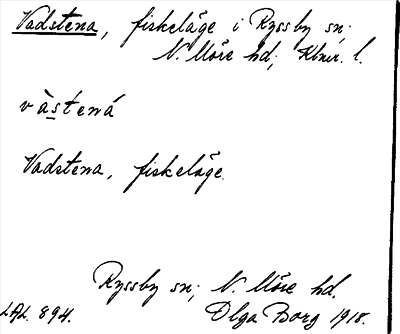 Vadstena, fiskeläge i Ryssby sn;
N. Möre hd; Klmr. l.
v à s t e n á
Vadstena, fiskeläge.
Ryssby sn; N. Möre hd.
LAL. 894. Olga Borg 1918.